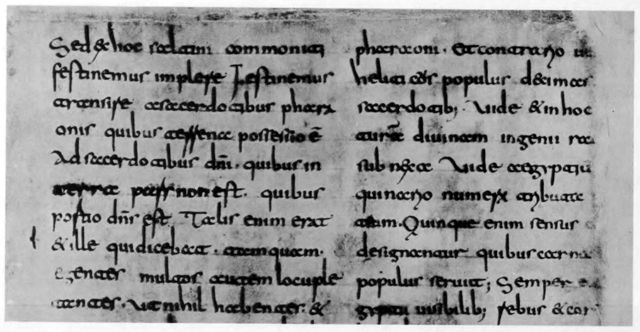 Sed & hoc commoniti
festinemus implere Festinemus
transire a sacerdotibus phara
onis quibus terrena possessio ē
Ad sacerdotibus dn̄i. quibus in
terra pars non est. quibus
portio dn̄s est. Talis enim erat
& ille qui dicebat. tamquam
egentes multos autem locuple
tantes. ut nihil habentes. &
pharaoni. Et contrario
populus decimas
sacerdotib; Uide & in hoc
divinam ingenii
sub Uide aegyptiu
quinario numero
Quinque enim sensus
designantur quibus carna
populus seruit; Semper
gyptii uisibilib; rebus & cor